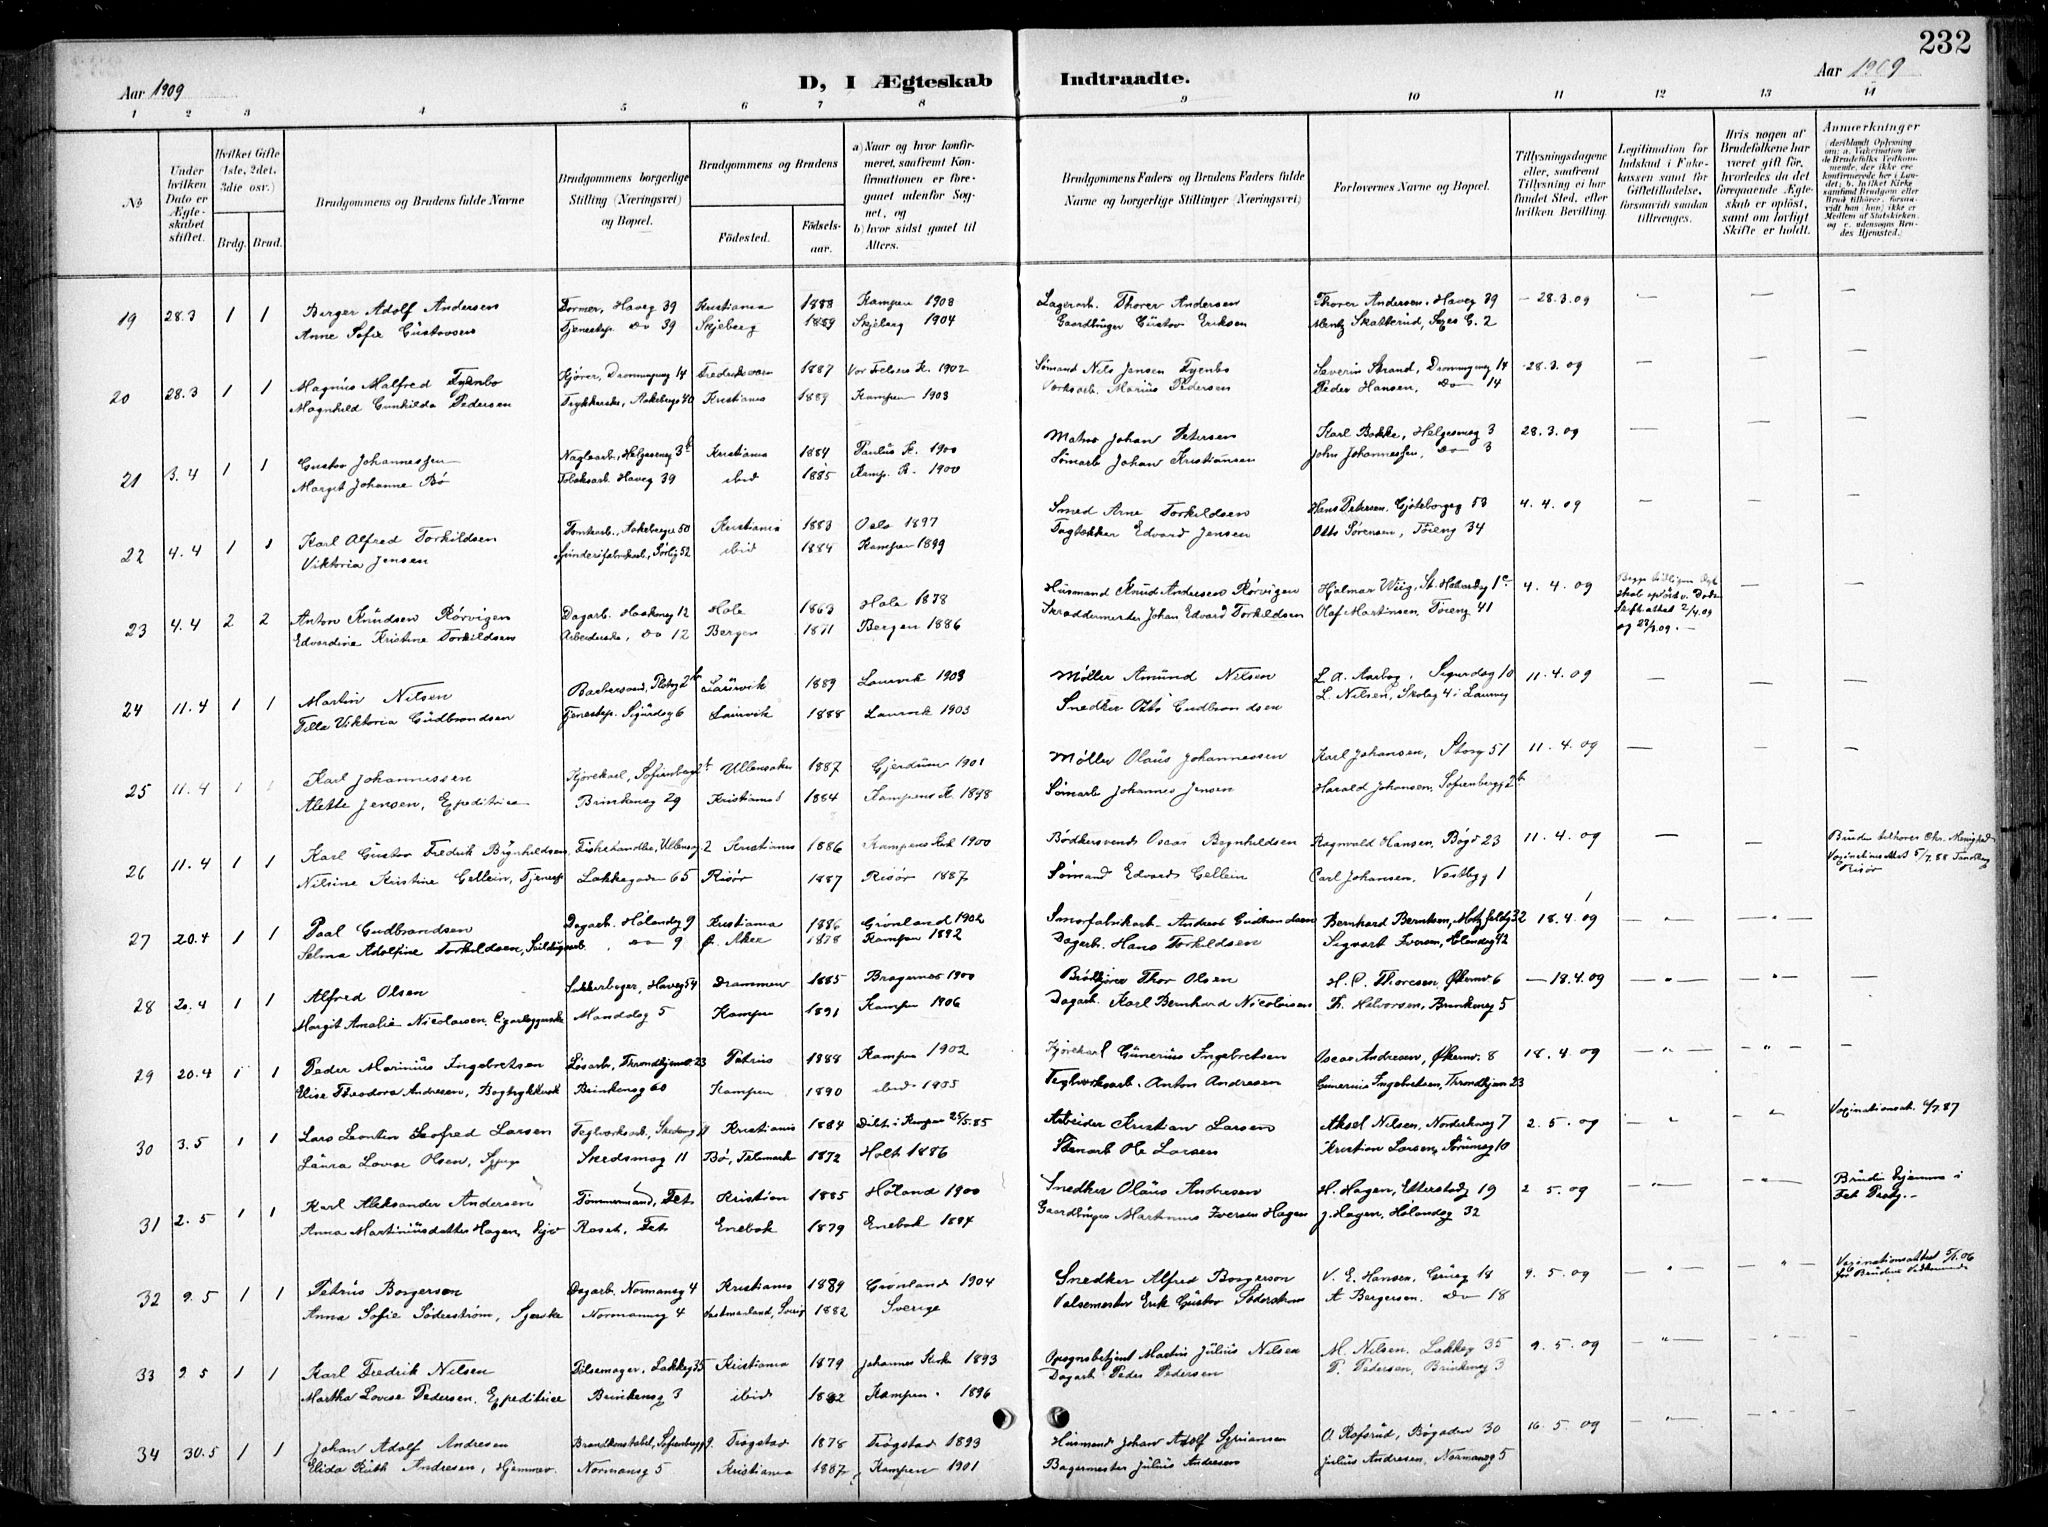 232
Aar 1909
D, I Ægteskab Indtraadte.
Aar 1909
1 2 3 4 5 6 7 8 9 10 11 12 13 14
No
Under hvilken Dato er Ægteskabet stiftet.
Hvilket Gifte (1ste, 2det, 3die osv.)
Brdg. Brud.
Brudgommens og Brudens fulde Navne
Brudgommens borgerlige Stilling (Næringsvei) og Bopæl.
Brudgommens og Brudens
Fødested. Fødselsaar.
a) Naar og hvor konfirmeret, saafremt Konfirmationen er foregaaet udenfor Sognet, og
b) hvor sidst gaaet til Alters.
Brudgommens Faders og Brudens Faders fulde Navne og borgerlige Stillinger (Næringsvei)
Forlovernes Navne og Bopæl.
Tillysningsdagene eller, saafremt Tillysning ei har fundet Sted, efter hvilken Bevilling.
Legitimation for Indskud i Fakekassen samt for Giftetilladelse, forsaavidt saadan tiltrænges.
Hvis nogen af Brudefolkene har været gift før, hvorledes da det foregaaende Ægteskab er opløst, samt om lovligt Skifte er holdt.
Anmærkninger
19 28.3 1 1 Birger Adolf Andersen Former, Haveg 39 Kristiania 1888 Kampen 1908 Lagerarb. Thorer Andersen Thorer Andersen, Haveg 39 - 28.3.09 — — —
Anne Sofie Gustavsen Tjenestep. Do 39 Skjeberg 1889 Skjeberg 1904 Gaardbruger Gustav Eriksen Mentz Skatterud, G. 2
20 28.3 1 1 Magnus Malfred Tyenbo Kjører, Dronningveg 14 1887 Vor Frelsers K. 1902 Sømand Nils Jensen Tyenbo Severin Strand, Dronningveg 14 28.3.09 — — —
Magnhild Gunhilda Pedersen Aakebergv 40 Kristiania 1889 Kampen 1903 Marius Pedersen Peder Hansen, Do 14
21 3.4 1 1 Gustav Johannessen Naglearb., Helgesensg 3 Kristiania 1884 Paulus K. 1900 Matros Johan Petersen Karl Bakke, Helgesensg 3 28.3.09 — — —
Margit Johanne Bø Tobaksarb. Haveg 39 ibid 1885 Kamp. K. 1900 Sømarb Johan Kristiansen John Johannessen, Do 3
22 4.4 1 1 Karl Alfred Torkildsen Tomtearb., Aakebergv 50 Kristiania 1883 Oslo 1897 Smed Arne Torkildsen Hans Petersen, Gøteborgsg 53 4.4.09 — — —
Viktoria Jensen Sørlig 52 ibid 1884 Kampen 1899 Tagtekker Edvard Jensen Otto Sørensen, Tøieng 34
23 4.4 2 2 Anton Knudsen Rørvigen Dagarb. 12 Hole 1863 Hole 1878 Husmand Knud Andersen Rørvigen Hjalmar Wiig, St. Halvardsg 1 4.4.09 — —
Edvardine Kristine Torkildsen Arbeiderske, Do 12 Bergen 1871 Bergen 1886 Skreddermester Johan Edvard Torkildsen Olaf Martinsen, Tøieng 41
24 11.4 1 1 Martin Nilsen Barbersvend, 2 Laurvik 1889 Laurvik 1903 Møller Amund Nilsen L. A. Aarbog, Sigurdsg 10 11.4.09 — — —
Tilla Viktoria Gudbrandsen Tjenestep. Sigurdsg 6 Laurvik 1888 Laurvik 1903 Snedker Otto Gudbrandsen L. Nilsen, Skoleg 4 i Laurvig
25 11.4 1 1 Karl Johannessen Kjørekarl, Sofienbergg 2 Ullensaker 1887 Gjerdrum 1901 Møller Olaus Johannessen Karl Johansen, Storg 51 11.4.09 — — —
Alette Jensen, Expeditrice Brinkensg 29 Kristiania 1884 Kampens K. 1898 Sømarb Johannes Jensen Harald Johansen, Sofienbergg 2
26 11.4 1 1 Karl Gustav Fredrik Brynhildsen Fiskehandler, Ullensg 2 Kristiania 1886 Kampens Kirk 1900 Bødkersvend Oscar Brynhildsen Ragnvald Hansen, Bøgd 23 11.4.09 — —
Nilsine Kristine Gellein, Tjenestp Lakkegaden 65 Risør 1887 Risør 1887 Sømand Edvard Gellein Carl Johansen, Vestbyg 1
27 20.4 1 1 Paal Gudbrandsen Dagarb. Hølandsg 9 Kristiania 1886 Grønland 1902 Andreas Gudbrandsen Bernhard Berntsen, Motzfeldtg 32 18.4.09
Selma Adolfine Torkildsen, Do 9 Ø. Aker 1878 Kampen 1892 Dagarb. Hans Torkildsen Sigvart Iversen, Hølandsg 42
28 20.4 1 1 Alfred Olsen Haveg 54 Drammen 1885 Bragernes 1900 Brødkjører Thor Olsen H. P. Thoresen, Økernv 6 — 18.4.09
Margit Amalie Nicolaisen, Manddag 5 Kampen 1891 Kampen 1906 Dagarb. Karl Bernhard Nicolaisen Th. Halvorsen, Brinkensg 5
29 20.4 1 1 Peder Marinius Ingebretsen Løsarb., Throndhjemsv 23 Petrus 1888 Kampen 1902 Kjørekarl Gunerius Ingebretsen Oscar Andresen, Økernv. 8 18.4.09
Elise Theodora Andresen, Brinkensg 60 Kampen 1890 ibid 1905 Teglverksarb. Anton Andresen Gunerius Ingebretsen, Throndhjemsv 23
30 3.5 1 1 Lars Leontin Leofred Larsen Teglverksarb., 11 Kristiania 1884 Døbt i Kampen 25/5.85 Arbeider Kristian Larsen Aksel Nilsen, Norderhovg 7 2.5.09 Vaxinationsatt. 4/7.87
Laura Lovise Olsen, Sypige Skedsmog 11 Bø, Telemark 1872 Holt 1886 Stenarb Ole Larsen Kristian Larsen, Sørumsg 10
31 2.5 1 1 Karl Aleksander Andersen Tømmermand, Fet Kristian 1885 Høland 1900 Snedker Olaus Andresen H. Hagen, Etterstadg 19 2.5.09 Bruden hjemme i Fet Prstg.
Anna Martiniusdatter Hagen, Roset, Fet Enebak 1879 Enebak 1894 Gaardbruger Martinius Iversen Hagen J. Hagen, Hølandsg 32
32 9.5 1 1 Petrus Borgersen Dagarb. Normansg 4 Kristiania 1889 Grønland 1904 Snedker Alfred Borgerson V. E. Hansen, Grueg 18 9.5.09 Vaxinationsattest 5/1.06 for Brudens Vedkommende
Anna Sofie Söderström, Syerske Normansg 4 Vestmanland, Sverig 1882 Sverige Valsemester Erik Gustav Söderström A Bergersen. Do 18
33 2 5 1 1 Karl Fredrik Nilsen Pølsemager, Lakkeg 35 Kristiania 1879 Johannes Kirke 1893 Opsynsbetjent Martin Julius Nilsen M. Nilsen, Lakkeg 35 9.5.09
Martha Lovise Pedersen, Expeditrice Brinkensg 3 ibid 1882 Kampen 1896 Dagarb Peder Pedersen P. Pedersen, Brinkensg 3
34 30.5 1 1 Johan Adolf Andresen Brandkonstabel, Sofienbergg 9 Trøgstad 1878 Trøgstad 1893 Husmand Johan Adolf O. Rafsrud, Bøgaden 30 16.5.09
Elida Ruth Andresen, Hjemmev. Normansg 5 Kristiania 1887 Kampen 1901 Bagermester Julius Andresen Julius Andresen, Normansg 5